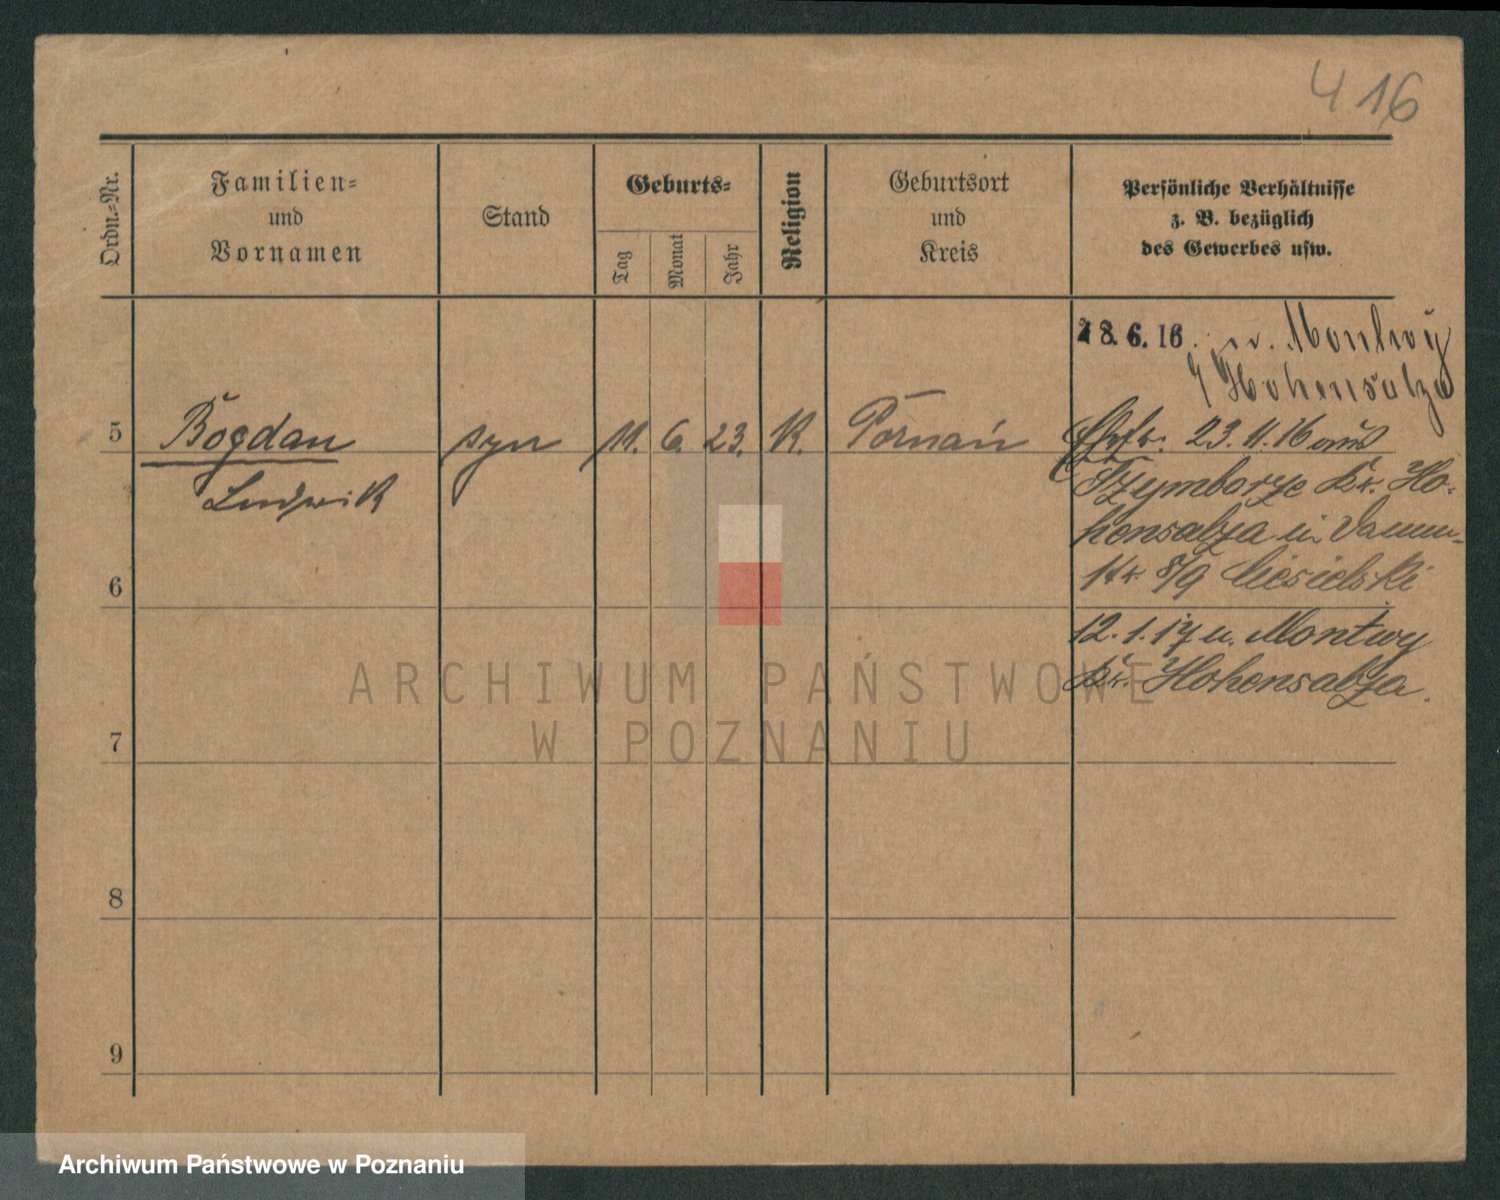 416
Ordn.-Nr.
Familien-
und
Vornamen
Stand
Geburts-
Tag
Monat
Jahr
Religion
Geburtsort
und
Kreis
Persönliche Verhältnisse
z. B. bezüglich
des Gewerbes usw.
28.6.16. n. Montwy
Hohensalza
5 Bogdan syn 11. 6. 23. K. Poznań
Ludwik
23. 11. 16 aus
Szymborze Kr. Ho-
hensalza in Damm-
str. 8/9 Ciesielski
12.1.17 n. Montwy
Kr. Hohensalza.
6
7
8
9
ARCHIWUM PAŃSTWOWE
W POZNANIU
Archiwum Państwowe w Poznaniu